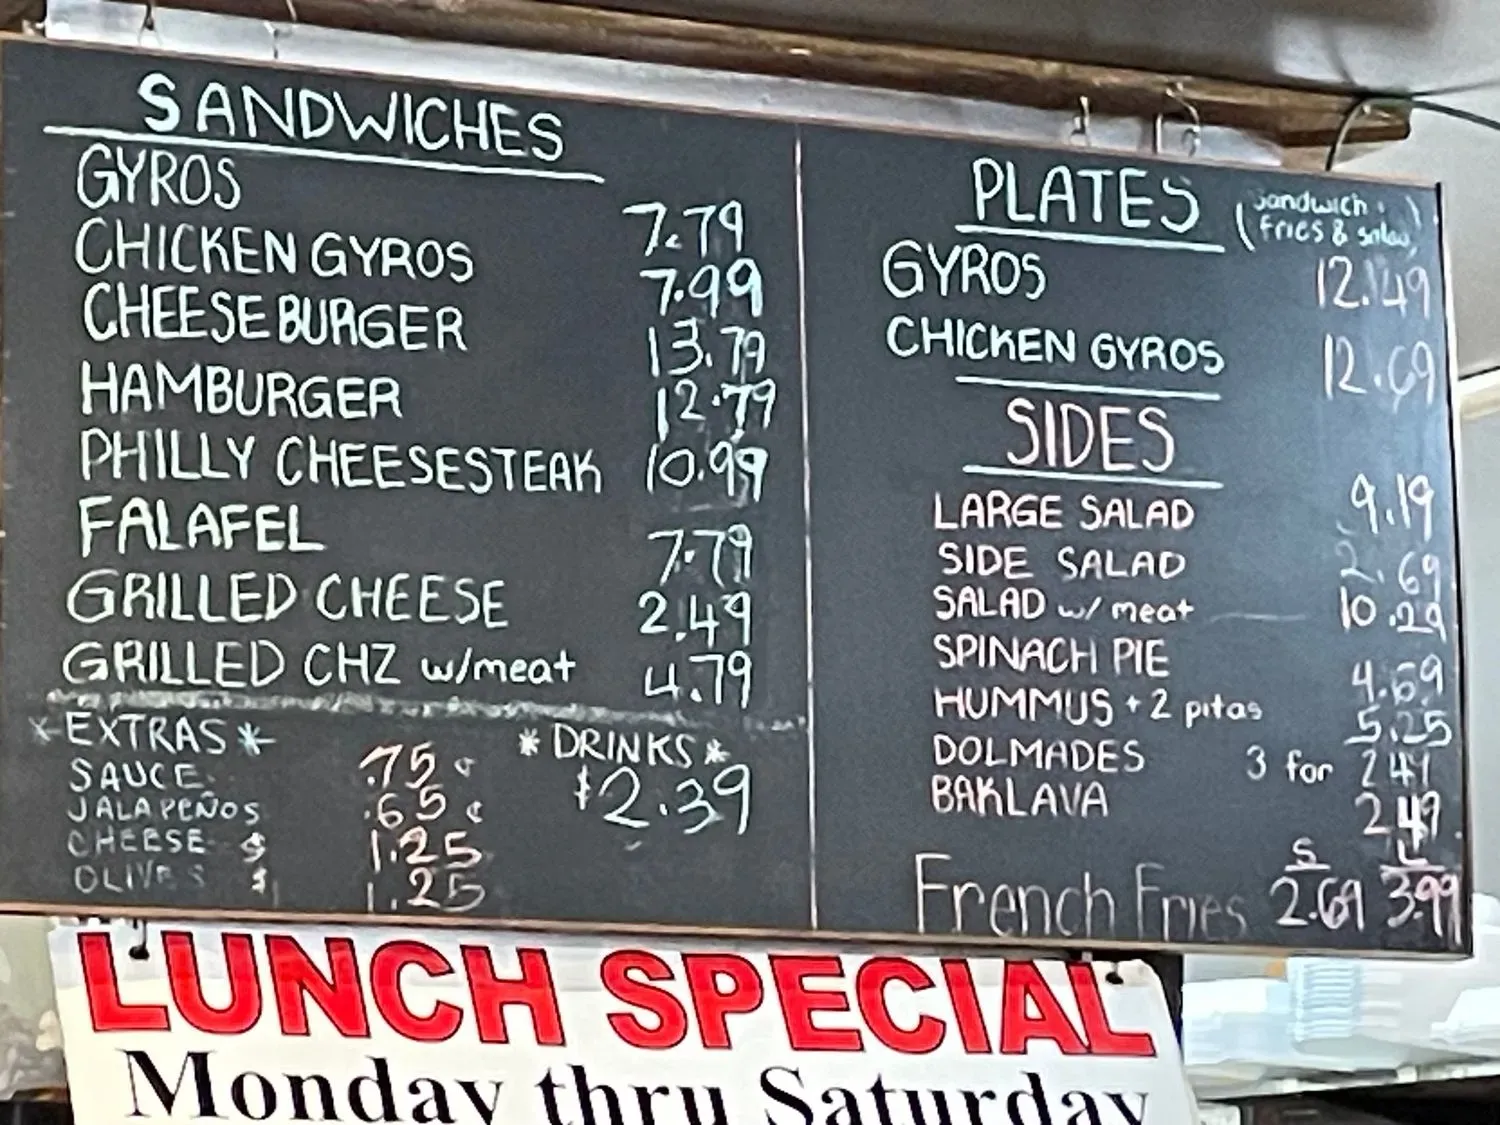 SANDWICHES
GYROS 7.79
CHICKEN GYROS 7.99
CHEESEBURGER 13.79
HAMBURGER 12.79
PHILLY CHEESESTEAK 10.99
FALAFEL 7.79
GRILLED CHEESE 2.49
GRILLED CHZ w/meat 4.79
*EXTRAS*
SAUCE .75 ¢
JALAPEÑOS .65 ¢
CHEESE $ 1.25
OLIVES $ 1.25
*DRINKS*
$2.39
PLATES (Sandwich, fries & salad)
GYROS 12.49
CHICKEN GYROS 12.69
SIDES
LARGE SALAD 9.19
SIDE SALAD 2.69
SALAD w/ meat 10.29
SPINACH PIE 4.69
HUMMUS + 2 pitas 5.25
DOLMADES 3 for 2.49
BAKLAVA 2.49
S L
French Fries 2.69 3.99
LUNCH SPECIAL
Monday thru Saturday